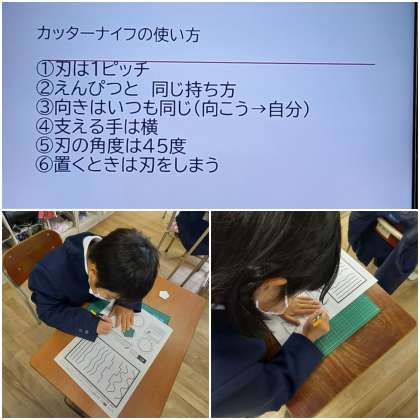 カッターナイフの使い方
①刃は1ピッチ
②えんぴつと 同じ持ち方
③向きはいつも同じ(向こう→自分)
④支える手は横
⑤刃の角度は45度
⑥置くときは刃をしまう